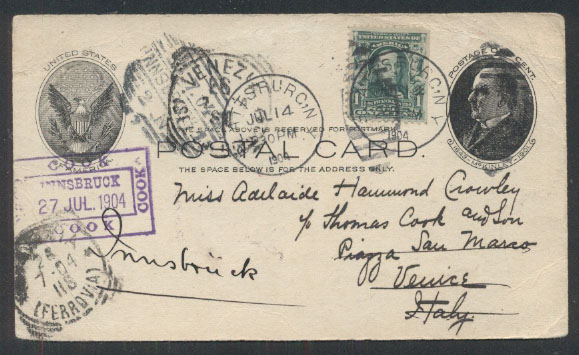 UNITED STATES
AMERICA
POSTAGE ONE CENT.
1843. McKINLEY. 1901.
VENEZIA
JUL 14
30PM
1904
1904
THE SPACE ABOVE IS RESERVED FOR POSTMARK.
POSTAL CARD.
THE SPACE BELOW IS FOR THE ADDRESS ONLY.
INNSBRUCK
27 JUL. 1904
COOK
COOK
Miss Adelaide Hammond Crowley
c/o Thomas Cook and Son
Piazza San Marco
Venice
Italy.
Innsbrück
04
(FERROVIA)